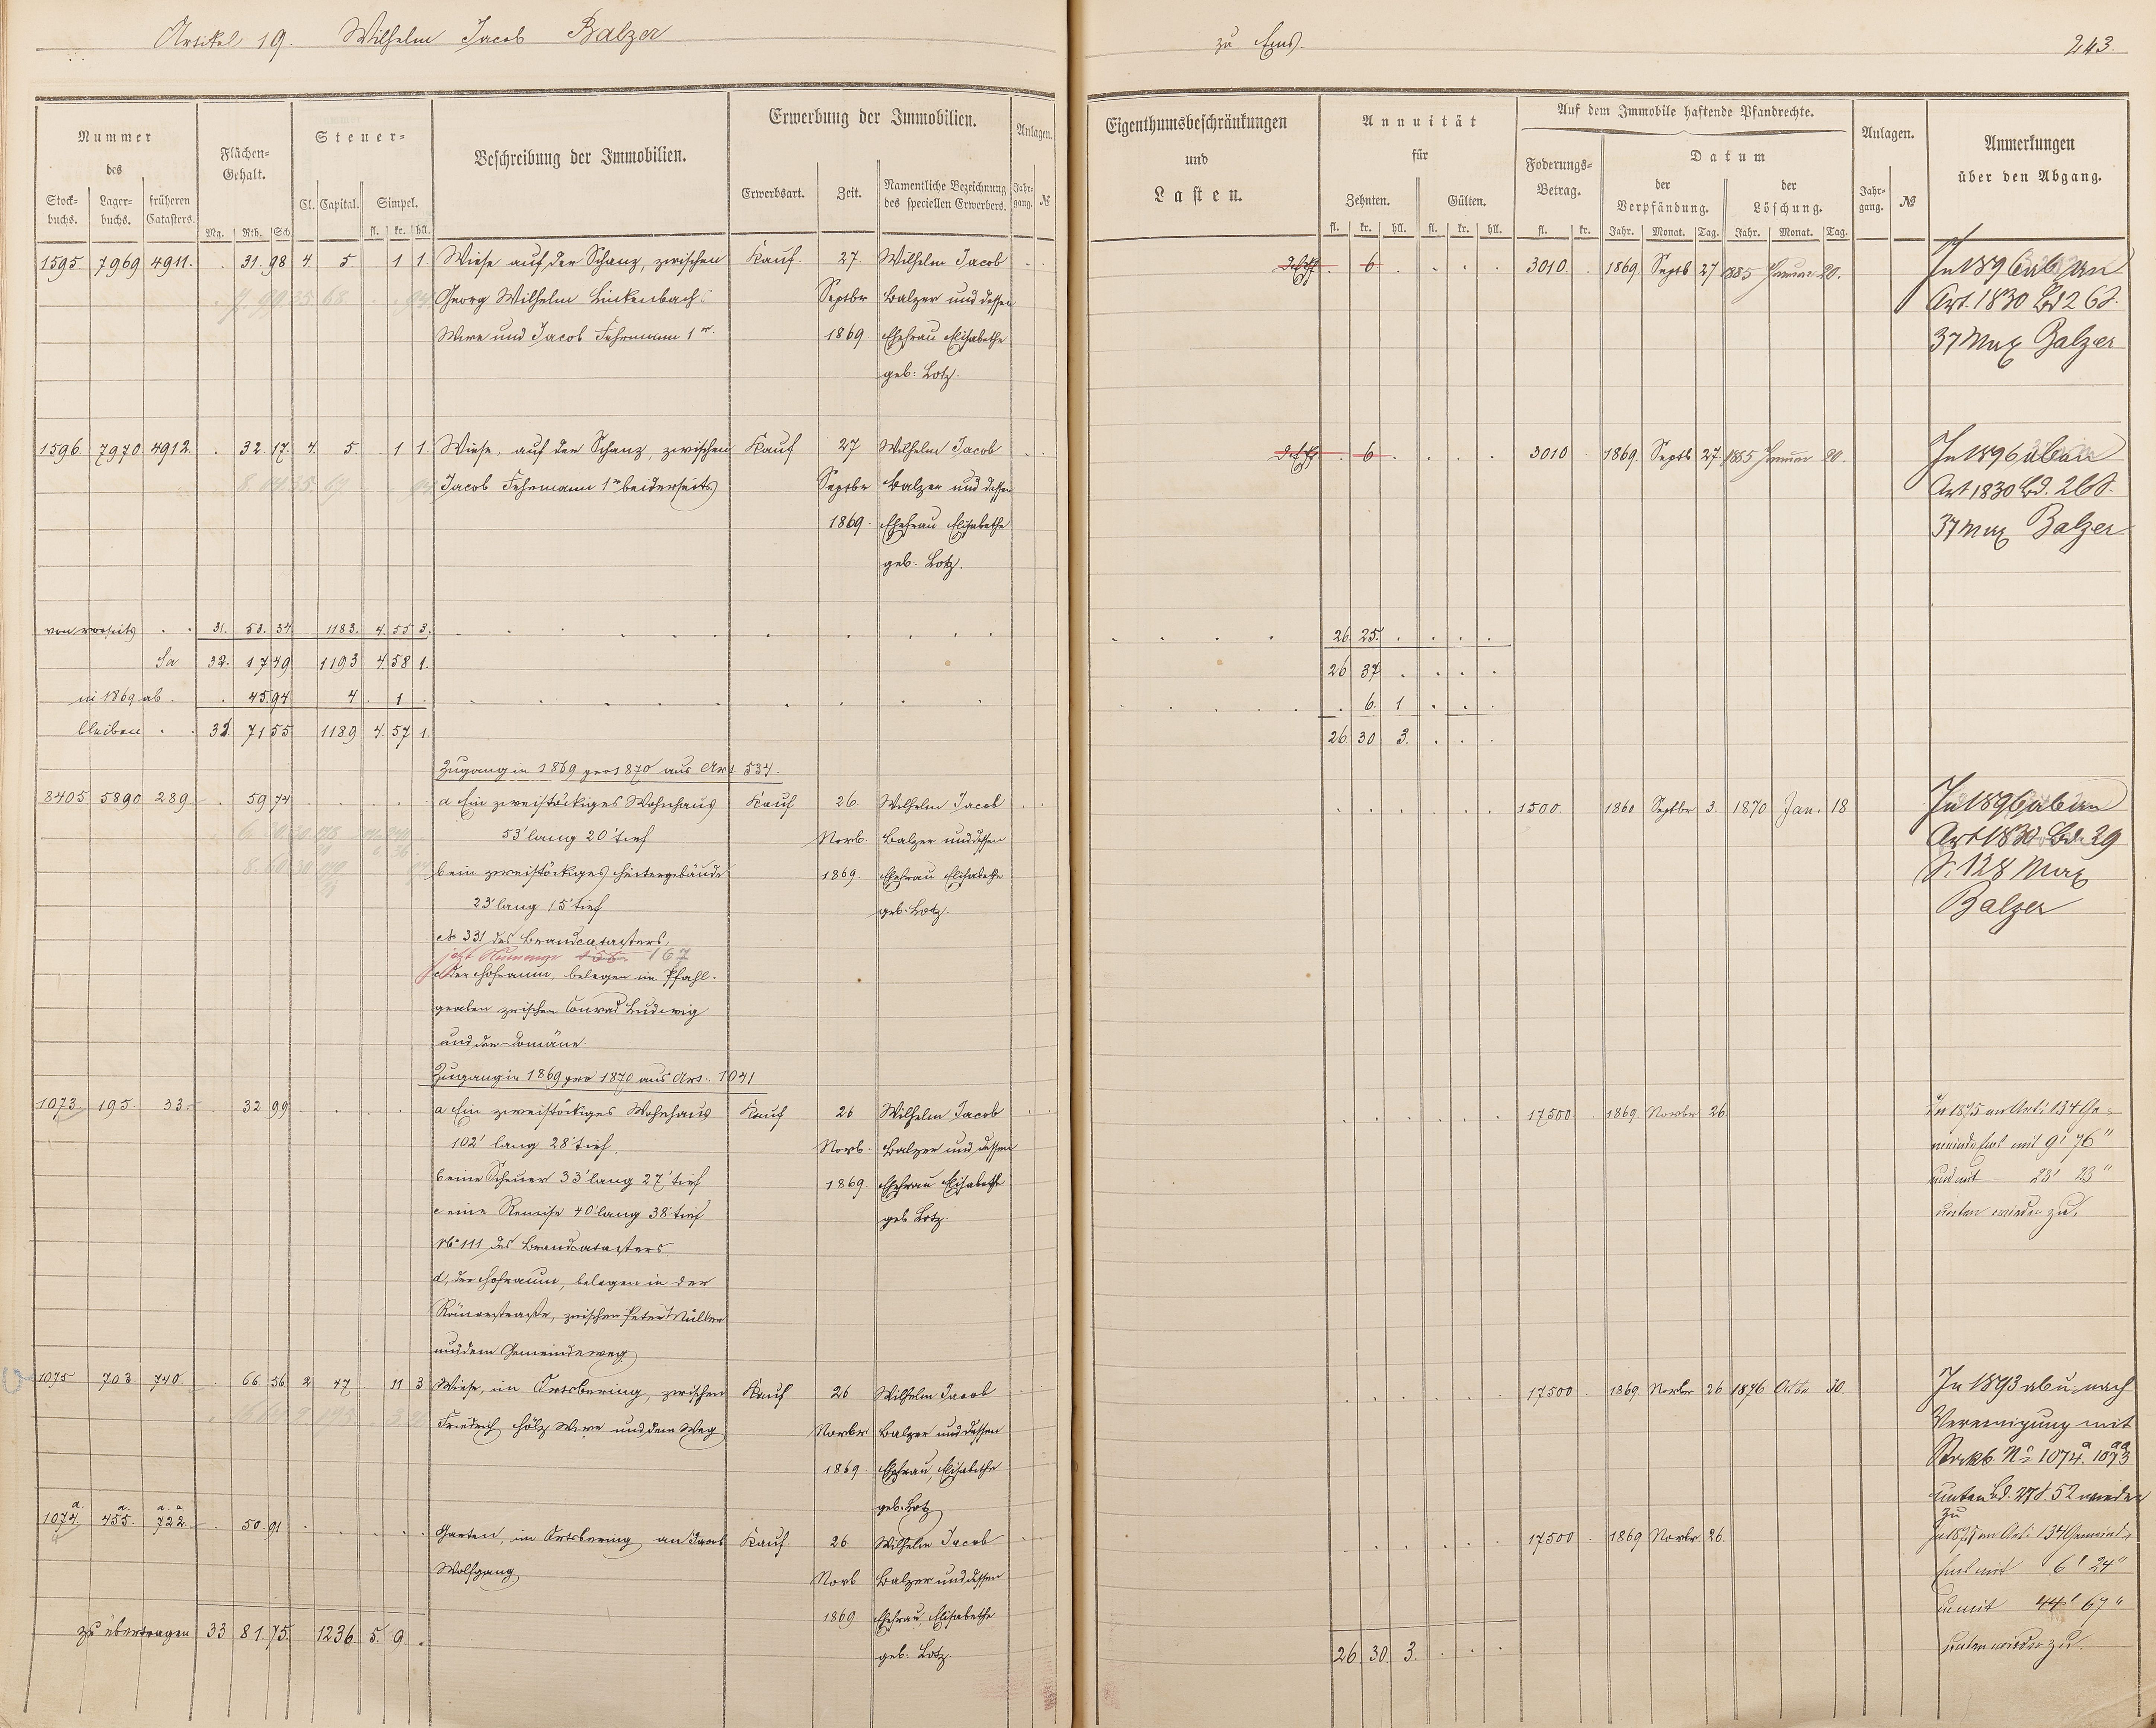 Artikel 19. Wilhelm Jacob Balzer
zu Ems. 243.
Nummer des
Stock-buchs. Lager-buchs. früheren Catasters.
Flächen-Gehalt.
Mg. Rth. Sch
Steuer-
Cl. Capital. Simpel.
fl. kr. hll.
Beschreibung der Immobilien.
Erwerbung der Immobilien.
Erwerbsart. Zeit. Namentliche Bezeichnung des speciellen Erwerbers.
Anlagen.
Jahr-gang. №
Eigenthumsbeschränkungen
und
Lasten.
Annuität
für
Zehnten. Gülten.
fl. kr. hll. fl. kr. hll.
Auf dem Immobile haftende Pfandrechte.
Foderungs-Betrag.
fl. kr.
Datum
der Verpfändung. der Löschung.
Jahr. Monat. Tag. Jahr. Monat. Tag.
Anlagen.
Jahr-gang. №
Anmerkungen
über den Abgang.
1595 7969 4911. . 31. 98 4. 5. 1 1 Wiese auf der Schanz, zwischen Kauf. 27. Wilhelm Jacob 6 3010. 1869. Septb 27 1885 Januar 20. In 1896 ab an
Georg Wilhelm Linkenbach Septbr Balzer und dessen Art. 1830 Bd 26 S.
Wwe und Jacob Fehrmann 1r 1869 Ehefrau Elisabethe 37 Max Balzer
geb: Lotz.
1596 7970 4912. . 32. 17. 4. 5. 1 1. Wiese, auf der Schanz, zwischen Kauf 27 Wilhelm Jacob 6 3010 1869. Septb 27 1885 Januar 20. In 1896 ab an
Jacob Fehrmann 1r beiderseits Septbr Balzer und dessen Art 1830 Bd. 26 S.
1869. Ehefrau Elisabethe 37 Max Balzer
geb. Lotz.
von vorseits . . 31. 53. 34 1183. 4. 55 3. 26. 25.
Sa 32. 17 49 1193 4. 58 1. 26 37
in 1869 ab . . 45. 94 4 . 1 . 6. 1
bleiben . . 31. 71 55 1189 4. 57 1. 26 30 3.
Zugang in 1869 pro 1870 aus Art 534.
8405 5890 289 . 59 74 a Ein zweistöckiges Wohnhaus Kauf 26. Wilhelm Jacob 1500. 1860 Septbr 3. 1870 Jan. 18 In 1896 ab an
53' lang 20' tief Novb. Balzer und dessen Art 1830 Bd. 29
b ein zweistöckiges Hintergebäude 1869 Ehefrau Elisabethe S. 128 Max
23' lang 15' tief geb. Lotz. Balzer
No 331 des Brandcatasters,
jetzt Nummer 158 167
c der Hofraum, belegen im Pfahl-
graben zwischen Conrad Ludwig
und der Domäne.
Zugang in 1869 pro 1870 aus Art. 1041
1073 195 33 . 32 99 a Ein zweistöckiges Wohnhaus Kauf 26 Wilhelm Jacob 17500 1869 Novbr 26. In 1875 an Art. 134 Ge-
102' lang 28' tief, Novb. Balzer und dessen meinde Ems mit 9' 76"
b eine Scheuer 33' lang 27' tief 1869. Ehefrau Elisabethe und mit 23' 23"
c eine Remise 40' lang 38' tief geb Lotz. unten wieder zu.
No 111 des Brandcatasters
d, der Hofraum, belegen in der
Römerstraße, zwischen Peter Müller
und dem Gemeindeweg
1075 703. 740. . 66. 56 2 47 . 11 3 Wiese, im Ortsbering, zwischen Kauf 26 Wilhelm Jacob 17500 1869 Novbr 26 1876 Octbr 30. In 1893 ab u. nach
Friedrich Hölz Wwe und dem Weg Novbr Balzer und dessen Vereinigung mit
1869 Ehefrau, Elisabethe Stockb. No 1074a 1073aa
geb. Lotz unten Bd. 27 S. 52 wieder zu
1074a. 455a. 722a.a. . 50. 91 Garten, im Ortsbering an Jacob Kauf. 26 Wilhelm Jacob 17500 1869 Novbr. 26. In 1875 an Art. 134 Gemeinde
Wolfgang Novb Balzer und dessen Ems mit 6' 24"
1869. Ehefrau, Elisabethe u. mit 44' 67"
geb. Lotz. unten wieder zu.
zu übertragen 33 81. 75. 1236. 5. 9. . 26. 30. 3.